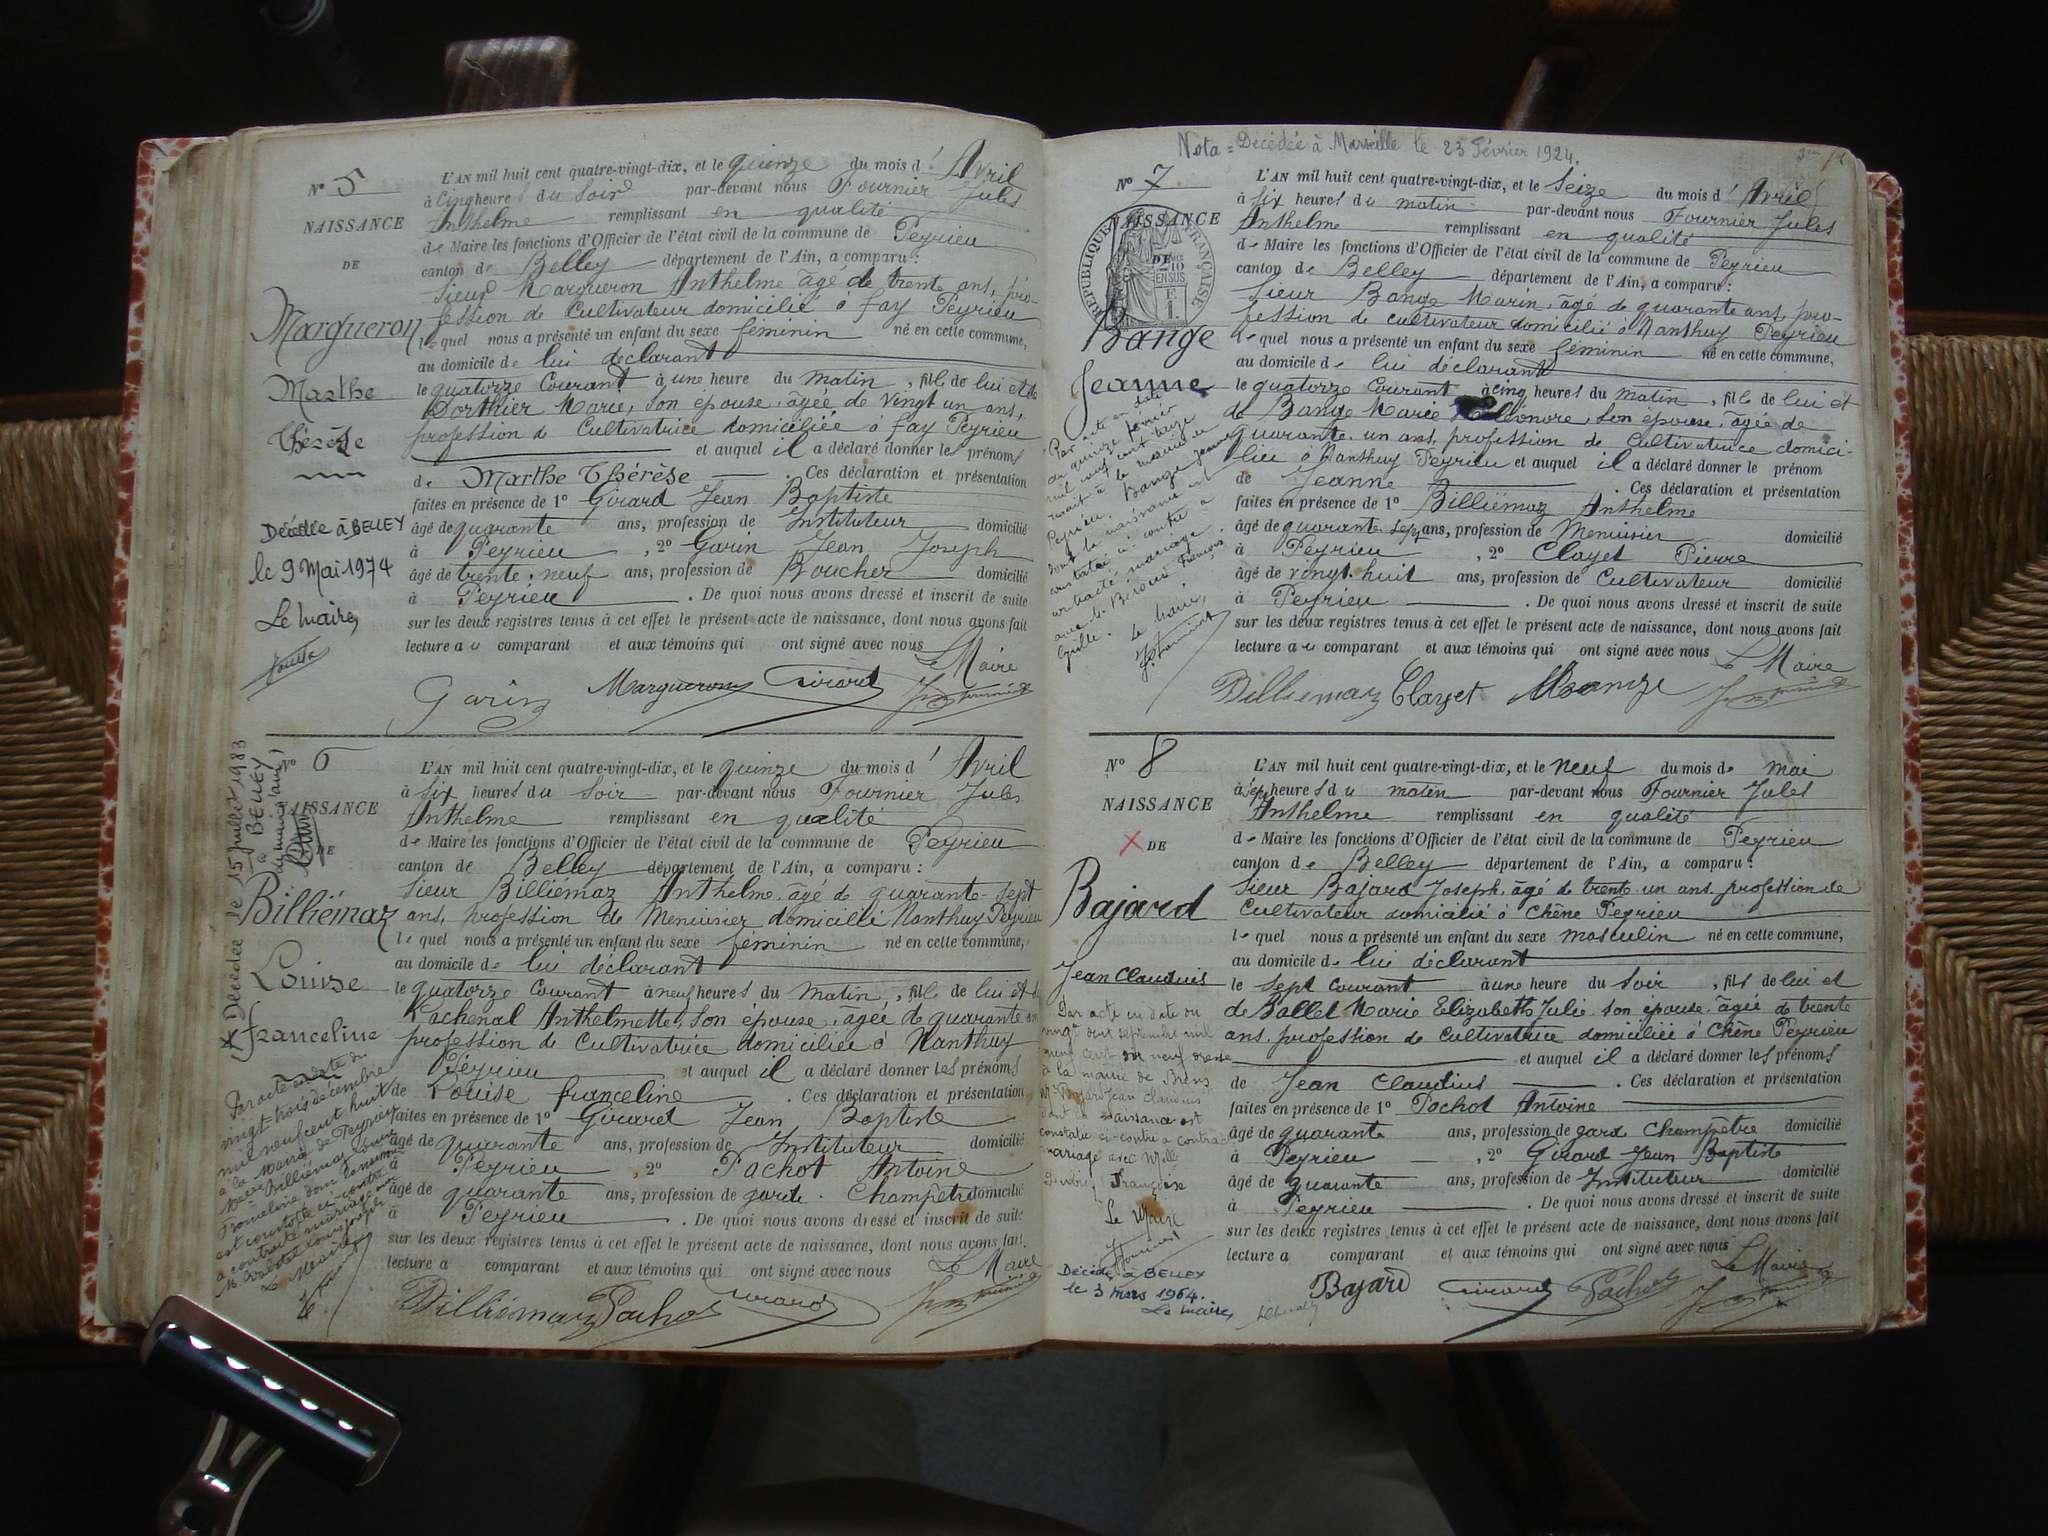 N° 5
NAISSANCE
DE
Margueron
Marthe
Thérèse
Décédée à BELLEY
le 9 Mai 1974
Le Maire,
L'AN mil huit cent quatre-vingt-dix, et le quinze du mois d'Avril
à cinq heures du soir par-devant nous Fournier Jules
Anthelme remplissant en qualité
de Maire les fonctions d'Officier de l'état civil de la commune de Peyrieu
canton de Belley département de l'Ain, a comparu :
Sieur Margueron Anthelme âgé de trente ans, pro-
fession de Cultivateur domicilié à fay Peyrieu
lequel nous a présenté un enfant du sexe féminin né en cette commune,
au domicile de lui déclarant
le quatorze Courant à une heure du matin, fille de lui et de
Dorthier Marie, son épouse, âgée de vingt un ans,
profession de Cultivatrice domiciliée à fay Peyrieu
et auquel il a déclaré donner les prénoms
de Marthe Thérèse. Ces déclaration et présentation
faites en présence de 1° Girard Jean Baptiste
âgé de quarante ans, profession de Instituteur domicilié
à Peyrieu, 2° Garin Jean Joseph
âgé de trente-neuf ans, profession de Boucher domicilié
à Peyrieu. De quoi nous avons dressé et inscrit de suite
sur les deux registres tenus à cet effet le présent acte de naissance, dont nous avons fait
lecture au comparant et aux témoins qui ont signé avec nous
Le Maire
Garin Margueron Girard
N° 6
NAISSANCE
DE
Billiémaz
Louise
franceline
* Décédée le 15 juillet 1983
à BELLEY
Par acte en date du
vingt-trois décembre
mil neuf cent huit
à la mairie de Peyrieu
Billiémaz Louise
franceline dont
est constatée ci-contre
a contracté mariage avec
Le Maire
L'AN mil huit cent quatre-vingt-dix, et le quinze du mois d'Avril
à six heures du soir par-devant nous Fournier Jules
Anthelme remplissant en qualité
de Maire les fonctions d'Officier de l'état civil de la commune de Peyrieu
canton de Belley département de l'Ain, a comparu :
Sieur Billiémaz Anthelme, âgé de quarante-sept
ans, profession de Menuisier domicilié Nanthuy Peyrieu
lequel nous a présenté un enfant du sexe féminin né en cette commune,
au domicile de lui déclarant
le quatorze Courant à neuf heures du matin, fille de lui et de
Lachenal Anthelmette, son épouse, âgée de quarante an
profession de Cultivatrice domiciliée à Nanthuy
Peyrieu et auquel il a déclaré donner les prénoms
de Louise franceline. Ces déclaration et présentation
faites en présence de 1° Girard Jean Baptiste
âgé de quarante ans, profession de Instituteur domicilié
à Peyrieu, 2° Pochot Antoine
âgé de quarante ans, profession de garde-Champêtre domicilié
à Peyrieu. De quoi nous avons dressé et inscrit de suite
sur les deux registres tenus à cet effet le présent acte de naissance, dont nous avons fait
lecture a comparant et aux témoins qui ont signé avec nous
Le Maire
Billiémaz Pochot Girard
Nota = Décédée à Marseille le 23 Février 1924.
N° 7
NAISSANCE
DE
RÉPUBLIQUE FRANÇAISE
Bange
Jeanne
Par acte en date
du quinze
mil neuf cent treize
à la mairie de
Peyrieu, Bange Jeanne
dont la naissance est
constatée ci-contre a
contracté mariage
avec
Le Maire,
L'AN mil huit cent quatre-vingt-dix, et le Seize du mois d'Avril
à six heures du matin par-devant nous Fournier Jules
Anthelme remplissant en qualité
de Maire les fonctions d'Officier de l'état civil de la commune de Peyrieu
canton de Belley département de l'Ain, a comparu :
Sieur Bange Marin, âgé de quarante ans, pro-
fession de cultivateur domicilié à Nanthuy Peyrieu
lequel nous a présenté un enfant du sexe féminin né en cette commune,
au domicile de lui déclarant
le quatorze Courant à cinq heures du matin, fille de lui et
de Bange Marie Eléonore, son épouse, âgée de
quarante-un ans, profession de Cultivatrice domici-
liée à Nanthuy Peyrieu et auquel il a déclaré donner le prénom
de Jeanne. Ces déclaration et présentation
faites en présence de 1° Billiémaz Anthelme
âgé de quarante-sept ans, profession de Menuisier domicilié
à Peyrieu, 2° Clayet Pierre
âgé de vingt-huit ans, profession de Cultivateur domicilié
à Peyrieu. De quoi nous avons dressé et inscrit de suite
sur les deux registres tenus à cet effet le présent acte de naissance, dont nous avons fait
lecture au comparant et aux témoins qui ont signé avec nous
Le Maire
Billiemaz Clayet
N° 8
NAISSANCE
X DE
Bajard
Jean Claudius
Par acte en date du
vingt deux septembre mil
neuf cent dix neuf dressé
à la mairie de Brens
Mr Bajard Jean Claudius
dont la naissance est
constatée ci-contre a contracté
mariage avec Melle
Françoise
Le Maire
Décédé à BELLEY
le 3 mars 1964.
Le Maire,
L'AN mil huit cent quatre-vingt-dix, et le neuf du mois de mai
à sept heures du matin par-devant nous Fournier Jules
Anthelme remplissant en qualité
de Maire les fonctions d'Officier de l'état civil de la commune de Peyrieu
canton de Belley département de l'Ain, a comparu :
Sieur Bajard Joseph, âgé de trente-un ans, profession de
Cultivateur domicilié à Chêne Peyrieu
lequel nous a présenté un enfant du sexe masculin né en cette commune,
au domicile de lui déclarant
le sept courant à une heure du soir, fils de lui et
de Ballet Marie Elizabeth Julie son épouse, âgée de trente
ans, profession de Cultivatrice domiciliée à Chêne Peyrieu
et auquel il a déclaré donner les prénoms
de Jean Claudius. Ces déclaration et présentation
faites en présence de 1° Pochot Antoine
âgé de quarante ans, profession de gard Champêtre domicilié
à Peyrieu, 2° Girard Jean Baptiste
âgé de quarante ans, profession de Instituteur domicilié
à Peyrieu. De quoi nous avons dressé et inscrit de suite
sur les deux registres tenus à cet effet le présent acte de naissance, dont nous avons fait
lecture a comparant et aux témoins qui ont signé avec nous
Le Maire
Bajard Girard Pochot